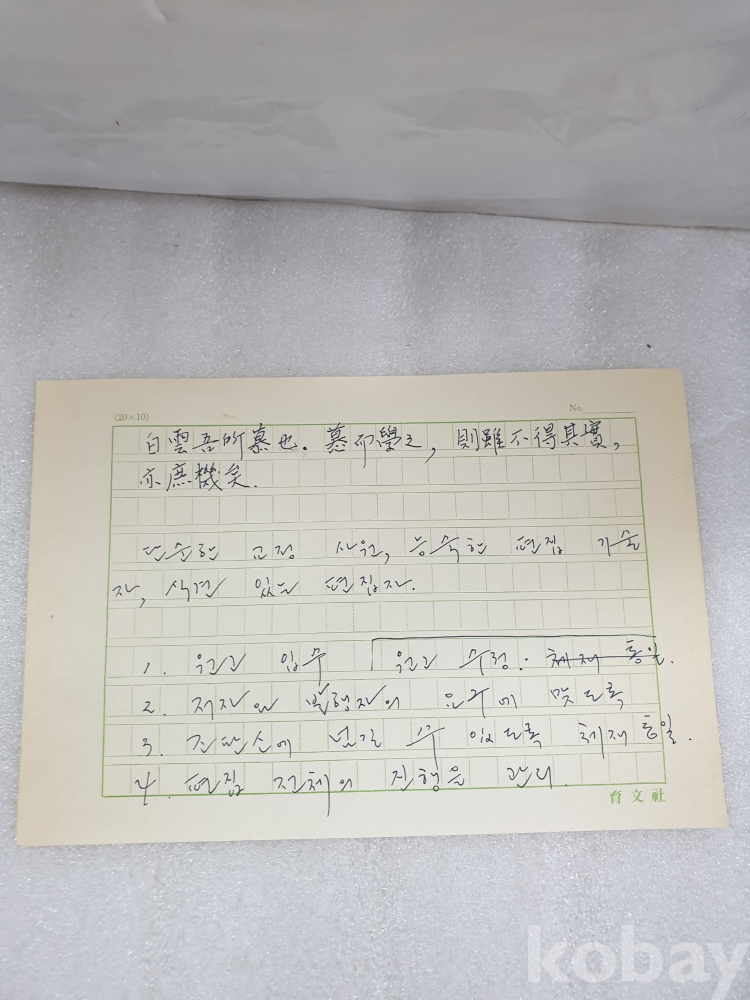 (20×10)
No.
白雲吾所慕也. 慕而學之, 則雖不得其實,
亦庶機矣.
단순한 교정 사원, 능숙한 편집 기술
자, 식견 있는 편집자.
1. 원고 입수 원고 수정. 체재 통일.
2. 저자와 발행자의 요구에 맞도록
3. 조판소에 넘길 수 있도록 체재 통일.
4. 편집 전체의 진행을 관리.
育文社
kobay